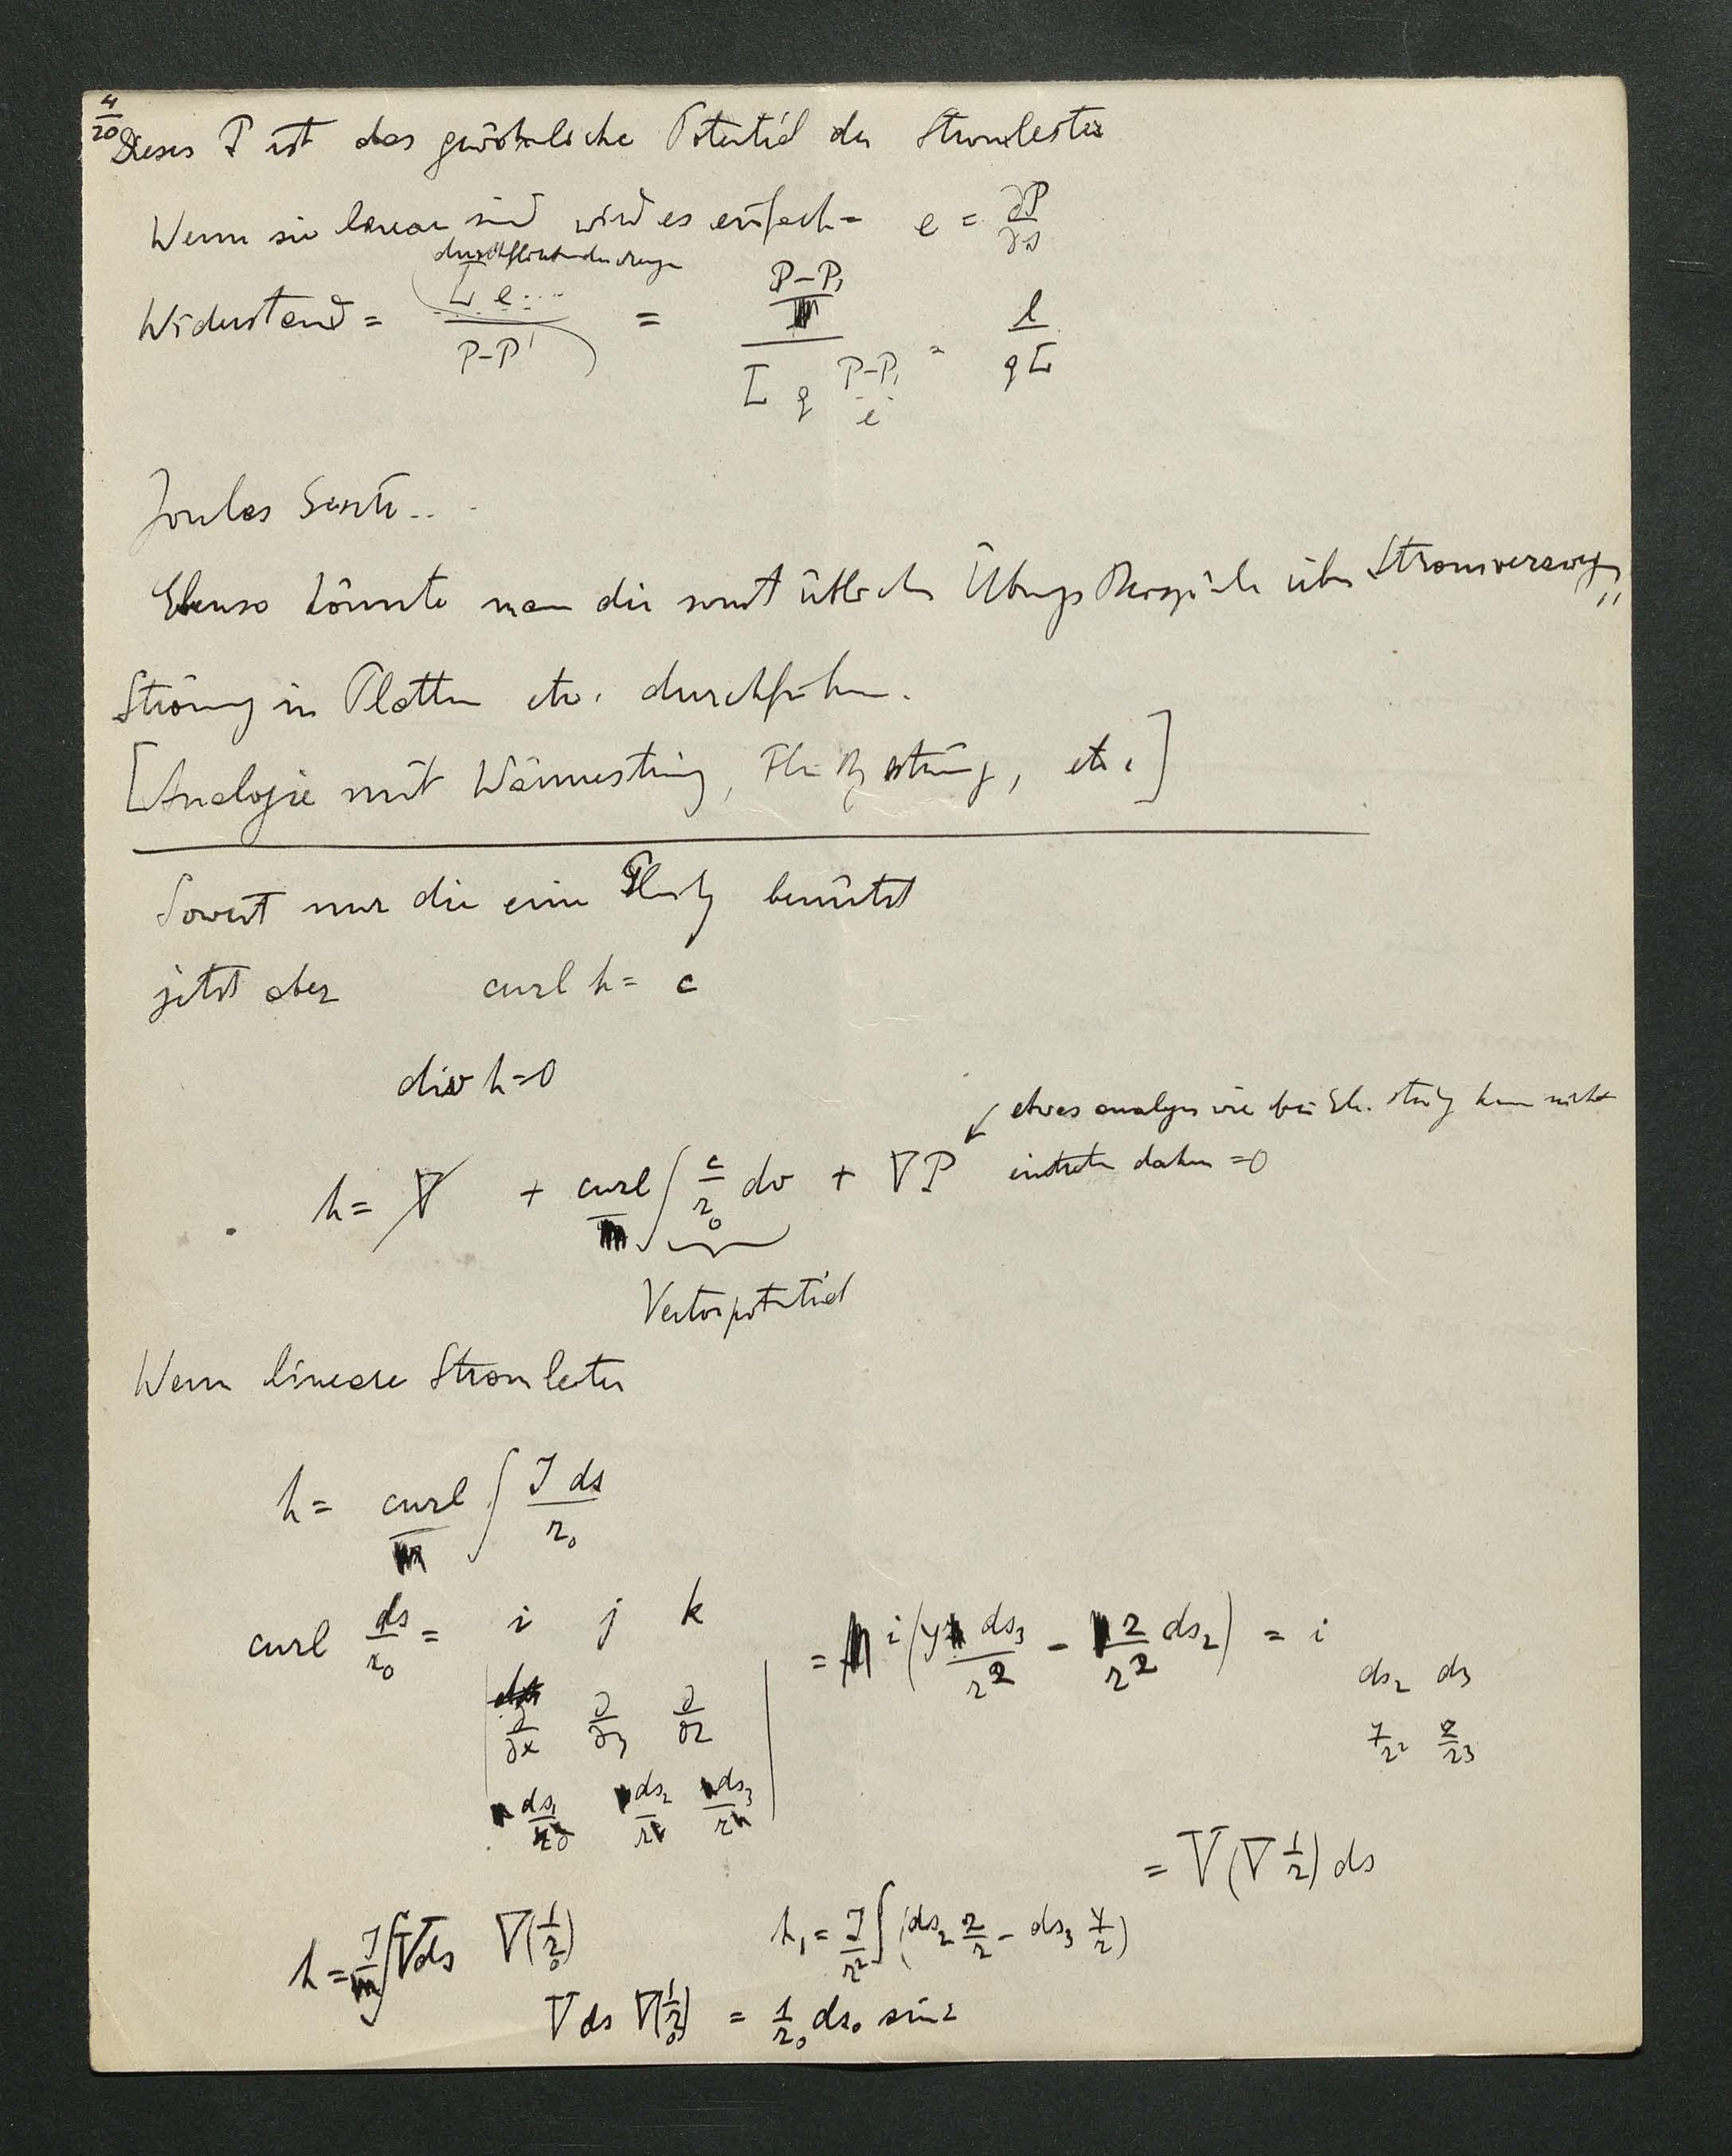 4/20
Dieses P ist das gewöhnliche Potential der Stromleiter
Wenn sie linear sind wird es einfach = e = ∂P/∂s
durchfließende Menge
Widerstand = (Σ e..../P-P') = (P-P₁)/(Σ q (P-P₁)/l) = l/(qΣ)
Joules Gesetz...
Ebenso könnte man die sonst üblichen Übungs Beispiele über Stromverzweig
Strömung in Platten etc. durchführen.
[Analogie mit Wärmeströmung, Flüssigkströmung, etc.]
Soweit nur die eine Gleichg benützt
jetzt aber curl h = c
div h = 0
etwas analoges wie bei El. kann nicht
h = + curl ∫ c/r₀ dv + ∇P eintreten daher = 0
Vectorpotential
Wenn lineare Stromleiter
h = curl ∫ J ds/r₀
curl ds/r₀ = i j k = i (y ds₃/r² - z/r² ds₂) = i
ds₂ ds₃
∂/∂x ∂/∂y ∂/∂z
y/r² z/r³
ds₁/r₀ ds₂/r ds₃/r
= V(∇ 1/r) ds
h = J ∫ V ds ∇(1/r₀) h₁ = J/r² ∫ (ds₂ z/r - ds₃ y/r)
V ds ∇(1/r₀) = 1/r₀ ds₀ sin